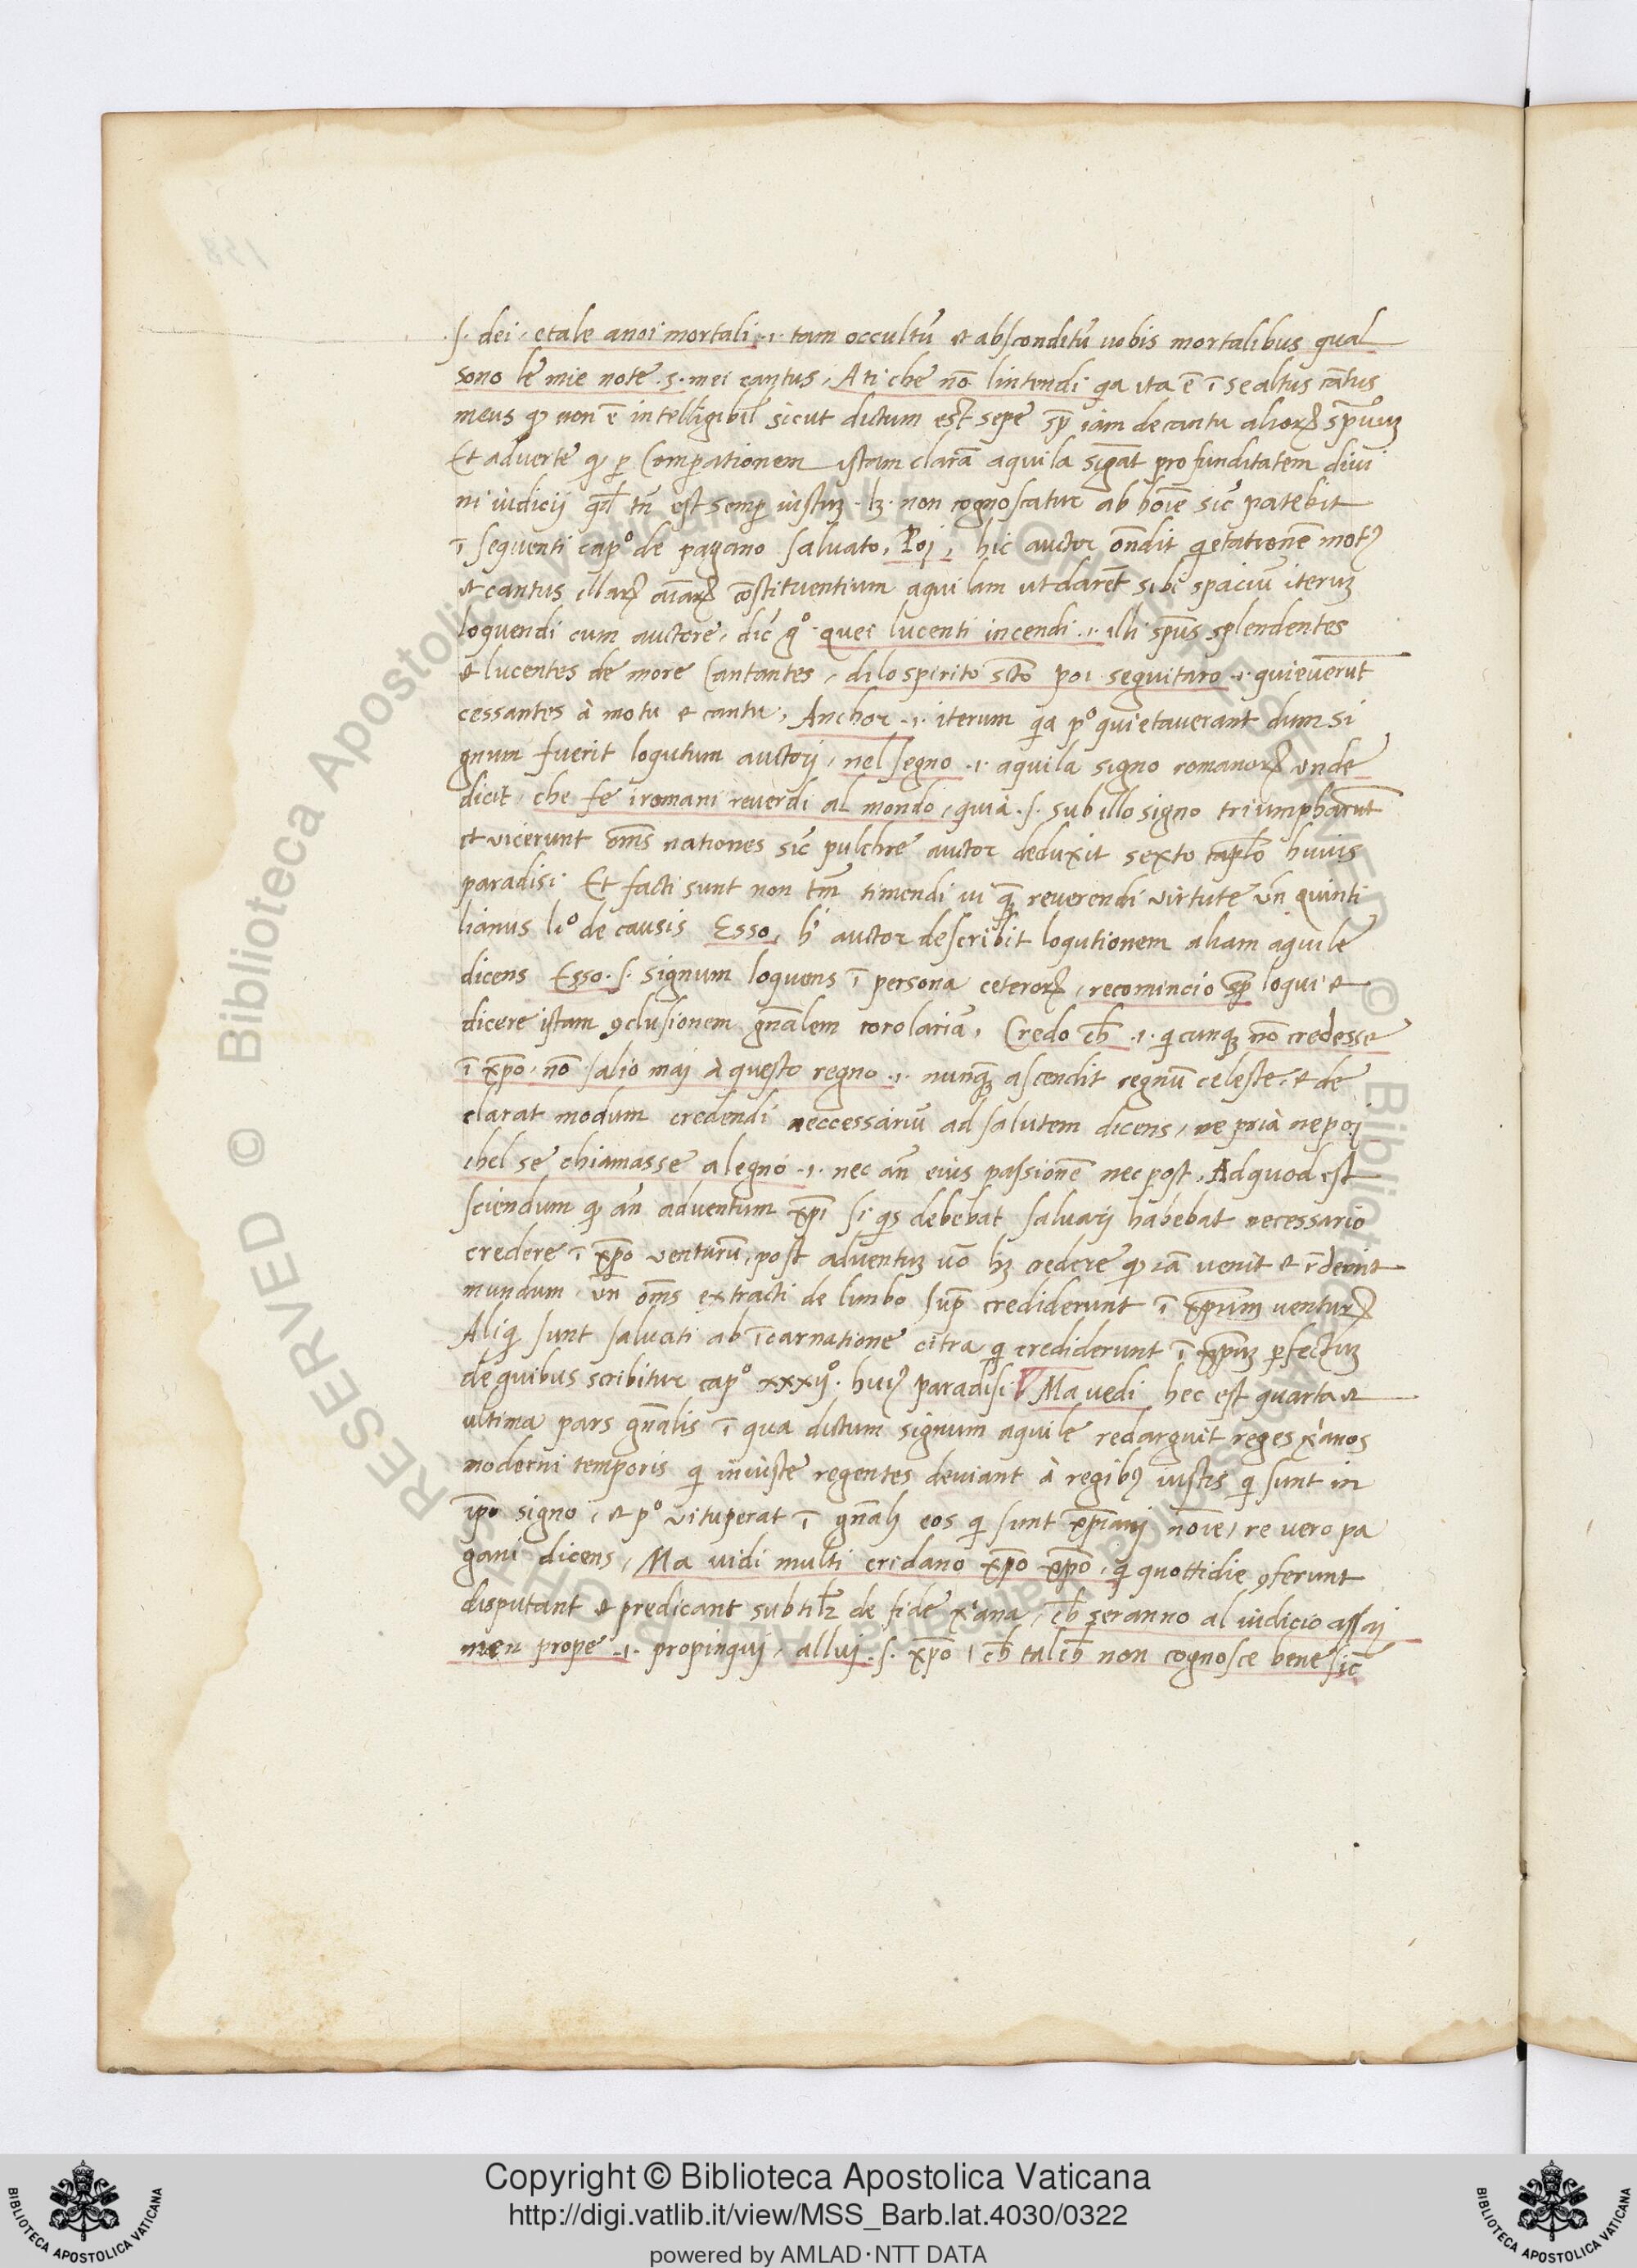 .ſ. dei, etale anoi mortali .i. tam occultũ et abſconditũ uobis mortalibus qual
sono le mie note .s. mei cantus, Ati che nõ lintendi qa ita ẽ ĩ se altus cãtus
meus qꝫ non ẽ intelligibil sicut dictum est sepe sp̃ iam de cantu alioꝝ spũuꝫ
Et adverte qꝫ ꝑ Comparationem iſtam clarã aquila sigñat profunditatem divi
ni iudicij qđ tñ eſt semp iuſtuꝫ .lꝫ. non cognoſcatur ab hõie sic̃ patebit
ĩ sequenti cap.º de pagano ſaluato, Poi, hic auctor oñdit qetationẽ motꝰ
et cantus illaꝝ aĩaꝝ cõstituentium aquilam ut darẽt sibi spaciũ iteruꝫ
loquendi cum auctore, dic̃ gº quei lucenti incendi .i. illi spũs splendentes
et lucentes de more Cantantes, dilo spirito sctõ poi seguitaro .i. quieverũt
cessantes à motu et cantu, Anchor .i. iterum qa pº quietaverant dum si
gnum fuerit loqutum auctorj, nel segno .i. aquila signo romanoꝝ unde
dicit, che fe i romani reverdi al mondo, quia .ſ. sub illo signo triumpharũt
et vicerunt om̃s nationes sic̃ pulchre auctor deduxit sexto caplõ huius
paradisi Et facti sunt non tm̃ timendi vi qꝫ reverendi virtute vñ quinti
lianus liº de causis Esso, hi auctor deſcribit loqutionem aliam aquile
dicens Esso .ſ. signum loquens ĩ persona ceteroꝝ, recomincio sp̃ loqui et
dicere iſtam ꝯclusionem gñalem corolariã, Credo cħ .i. qcunqꝫ nõ credesse
ĩ xp̃o, nõ ſalio maj à queſto regno .i. nunqꝫ aſcendit regnũ celeſte, et de
clarat modum credendi neccessariũ ad ſalutem dicens, ne prià ne poj
chel se chiamasse alegno .i. nec añ eius paſsionẽ nec poſt, Ad quod eſt
ſciendum qꝫ añ adventum xp̃i ſi qs debebat ſaluarj habebat necessario
credere ĩ xp̃o venturũ, poſt adventuꝫ vo hꝫ credere qꝫ iã venit et r̃demit
mundum, vñ om̃s extracti de limbo ſup̃ crediderunt ĩ xp̃um venturꝝ
Aliq ſunt ſaluati ab ĩcarnatione citra q crediderunt ĩ xp̃uꝫ ꝑfectuꝫ
de quibus scribitur capº xxxijº. huiꝰ paradiſi Ma vedi hec eſt quarta et
ultima pars gñalis ĩ qua dictum signum aquile redarguit reges xãnos
moderni temporis q iniuste regentes deviant à regibꝰ iuſtis q ſunt in
ip̃o signo, et pº vituperat ĩ gñali eos q ſunt xp̃ianj noĩe, re vero pa
gani dicens, Ma vidi multi cridano xp̃o xp̃o, q quottidie ꝯferunt
disputant et predicant subtilꝫ de fide xãna, cħ seranno al iudicio aſſaj
men prope .i. propinquj, alluj .ſ. xp̃o, cħ talcħ non cognoſce bene ſic̃
Copyright © Biblioteca Apostolica Vaticana
http://digi.vatlib.it/view/MSS_Barb.lat.4030/0322
powered by AMLAD·NTT DATA
BIBLIOTECA APOSTOLICA VATICANA
BIBLIOTECA APOSTOLICA VATICANA